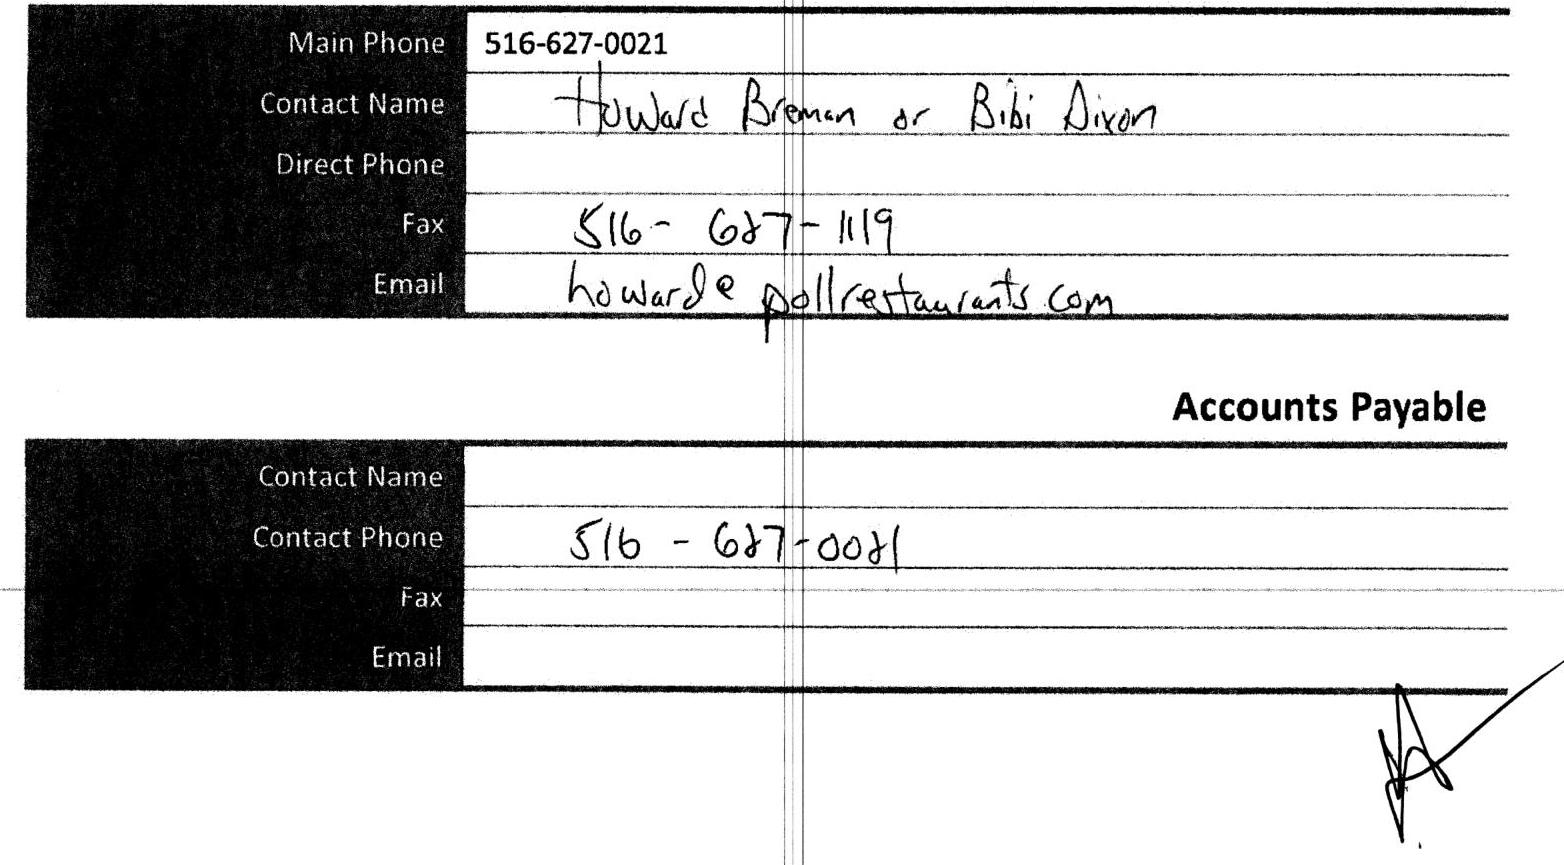 Main Phone 516-627-0021
Contact Name Howard Breman or Bibi Dixon
Direct Phone
Fax 516-627-1119
Email howard@pollrestaurants.com
Accounts Payable
Contact Name
Contact Phone 516-627-0021
Fax
Email